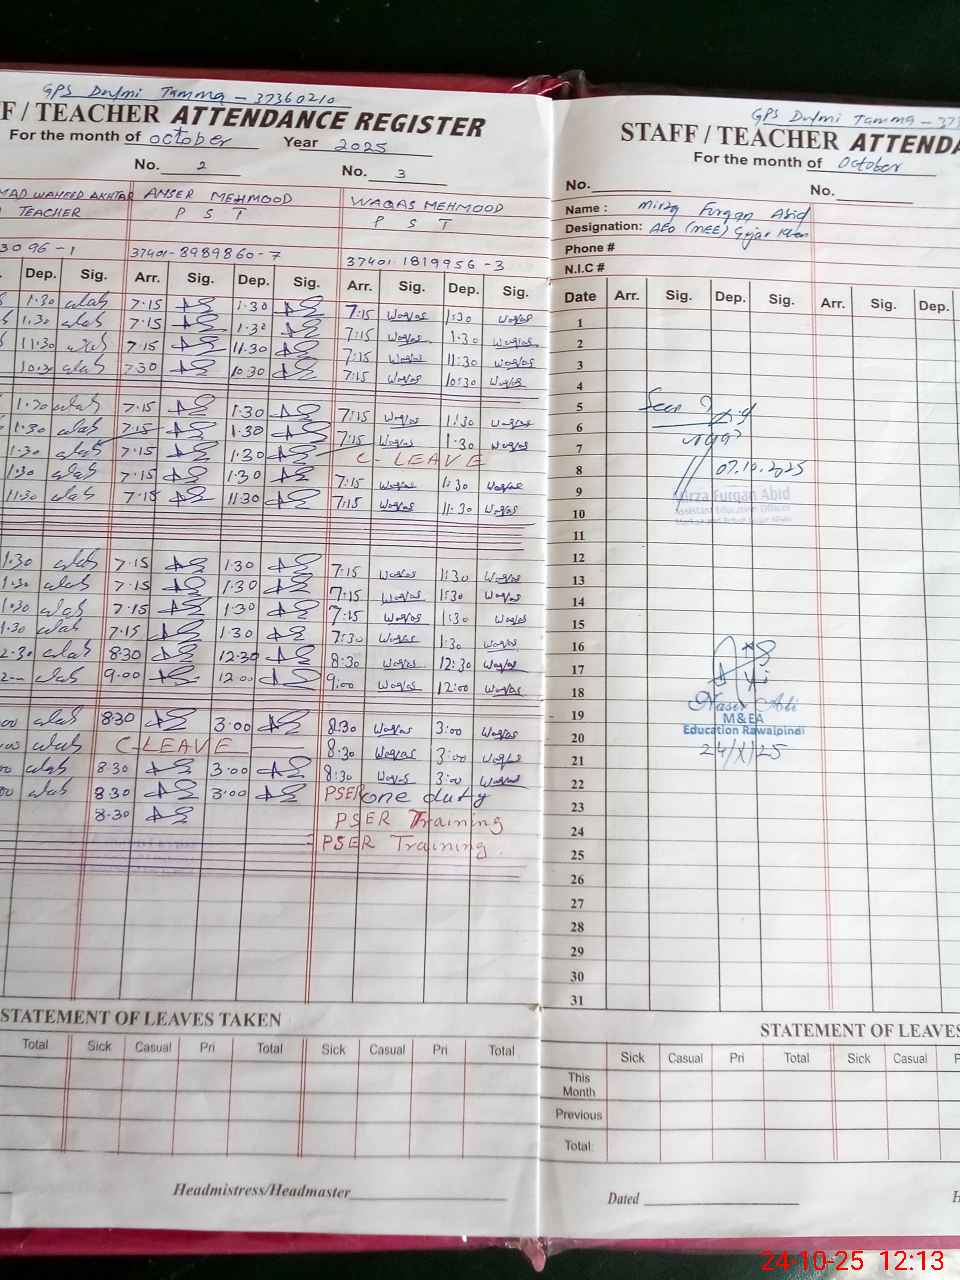 GPS Dulmi Tamma - 37360210
F / TEACHER ATTENDANCE REGISTER
For the month of October Year 2025
No. 2 No. 3
MAD WAHEED AKHTAR ANSER MEHMOOD WAQAS MEHMOOD
TEACHER P S T P S T
3096-1 37401-8989860-7 37401 1819956-3
Dep. Sig. Arr. Sig. Dep. Sig. Arr. Sig. Dep. Sig.
1.30 7.15 1.30 7:15 Waqas 1:30 Waqas
1.30 7.15 1.30 7:15 Waqas 1.30 Waqas
11.30 7.15 11.30 7:15 Waqas 11:30 Waqas
10.30 7.30 10.30 7:15 Waqas 10:30 Waqas
1.30 7.15 1.30 7:15 Waqas 1:30 Waqas
1.30 7.15 1.30 7:15 Waqas 1.30 Waqas
1.30 7.15 1.30 C-LEAVE
1.30 7.15 1.30 7:15 Waqas 1:30 Waqas
11.30 7.15 11.30 7:15 Waqas 11:30 Waqas
1.30 7.15 1.30 7:15 Waqas 1:30 Waqas
1.30 7.15 1.30 7:15 Waqas 1:30 Waqas
1.30 7.15 1.30 7:15 Waqas 1:30 Waqas
1.30 7.15 1.30 7:30 Waqas 1:30 Waqas
2.30 8.30 12.30 8:30 Waqas 12:30 Waqas
9.00 12.00 9:00 Waqas 12:00 Waqas
00 8.30 3.00 8:30 Waqas 3:00 Waqas
00 C-LEAVE 8:30 Waqas 3:00 Waqas
00 8.30 3.00 8:30 Waqas 3:00 Waqas
00 8.30 3.00 PSER one duty
8.30 PSER Training
PSER Training
STATEMENT OF LEAVES TAKEN
Total Sick Casual Pri Total Sick Casual Pri Total
Headmistress/Headmaster
GPS Dulmi Tamma - 373
STAFF / TEACHER ATTENDA
For the month of October
No. No.
Name : Mirza Furqan Abid
Designation: AEO (MEE) Gujar Khan
Phone #
N.I.C #
Date Arr. Sig. Dep. Sig. Arr. Sig. Dep.
1
2
3
4
5
6
7
8
9
10
11
12
13
14
15
16
17
18
19
20
21
22
23
24
25
26
27
28
29
30
31
Seen
07.10.2025
Mirza Furqan Abid
Assistant Education Officer
Nasir Ali
M&EA
Education Rawalpindi
24/X/25
STATEMENT OF LEAVES
Sick Casual Pri Total Sick Casual P
This Month
Previous
Total:
Dated H
24-10-25 12:13